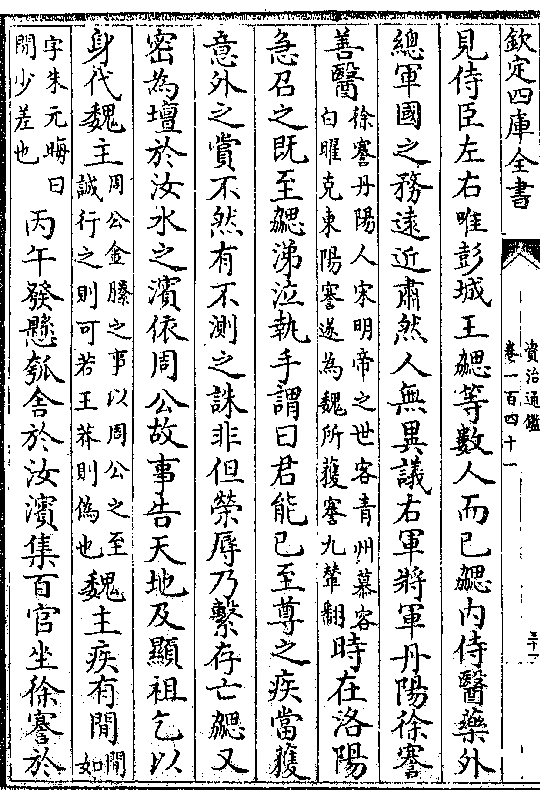 欽定四庫全書
資治通鑑
卷一百四十一
二十一
見侍臣左右唯彭城王勰等數人而已勰内侍醫藥外
總軍國之務遠近肅然人無異議右軍將軍丹陽徐謇
善醫徐謇丹陽人宋明帝之世客青州慕容白曜克東陽謇遂為魏所獲謇九輦翻時在洛陽
急召之既至勰涕泣執手謂曰君能已至尊之疾當獲
意外之賞不然有不測之誅非但榮辱乃繫存亡勰又
密為壇於汝水之濱依周公故事告天地及顯祖乞以
身代魏主周公金縢之事以周公之至誠行之則可若王莽則偽也魏主疾有間間如
字朱元晦曰間少差也丙午發懸瓠舍於汝濱集百官坐徐謇於